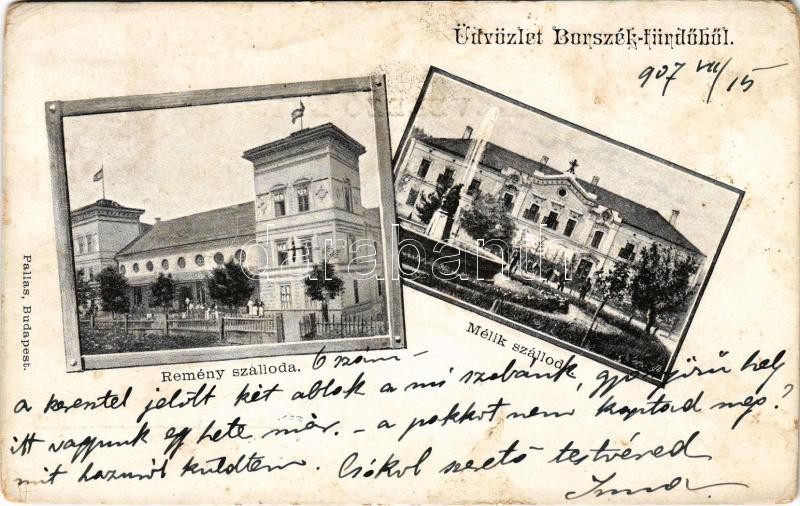 Üdvözlet Borszék-fürdőből.
907 VII/15
darabanth
Pallas, Budapest.
Remény szálloda.
Mélik szálloda.
6 szám –
a kereszttel jelölt két ablak a mi szobánk, gyönyörű hely
itt vagyunk egy hete már. – a pakkot nem kaptad meg?
mit hazuról küldtem. Csókol szerető testvéred
Irma.